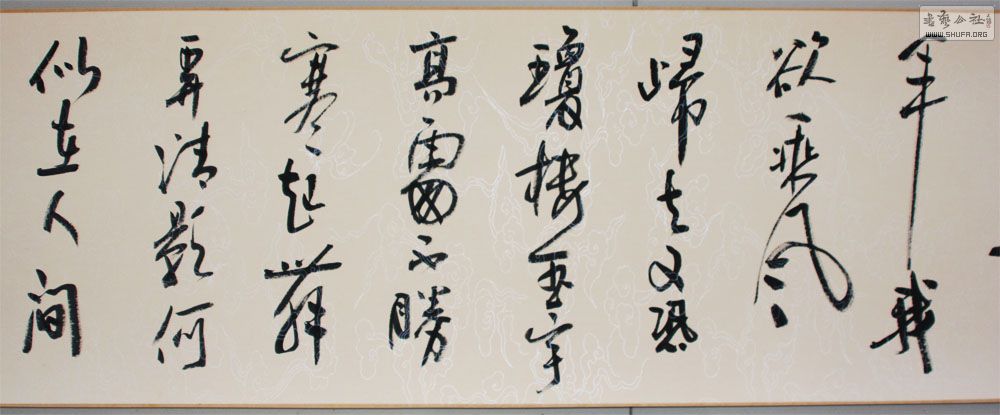 年我
欲乘風
歸去又恐
瓊樓玉宇
高處不勝
寒起舞
弄清影何
似在人間
書藝公社
WWW.SHUFA.ORG